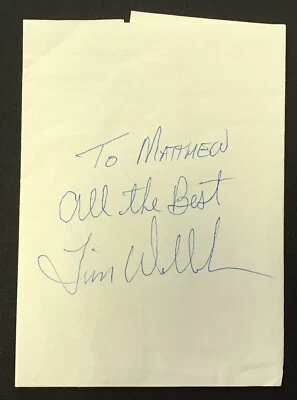 To MATTHEW
All the Best
Tim